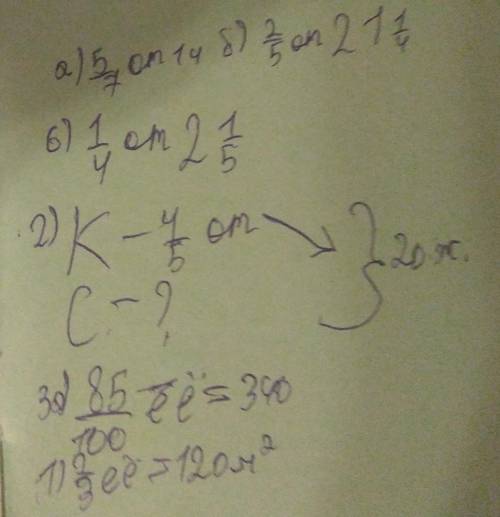 а) 5/7 от 14 б) 2/5 от 21 1/4
в) 1/4 от 2 1/5
2) К – 4/5 от } 20 ж.
С – ?
3а) 85/100 её = 340
1) 2/3 её = 120 м²